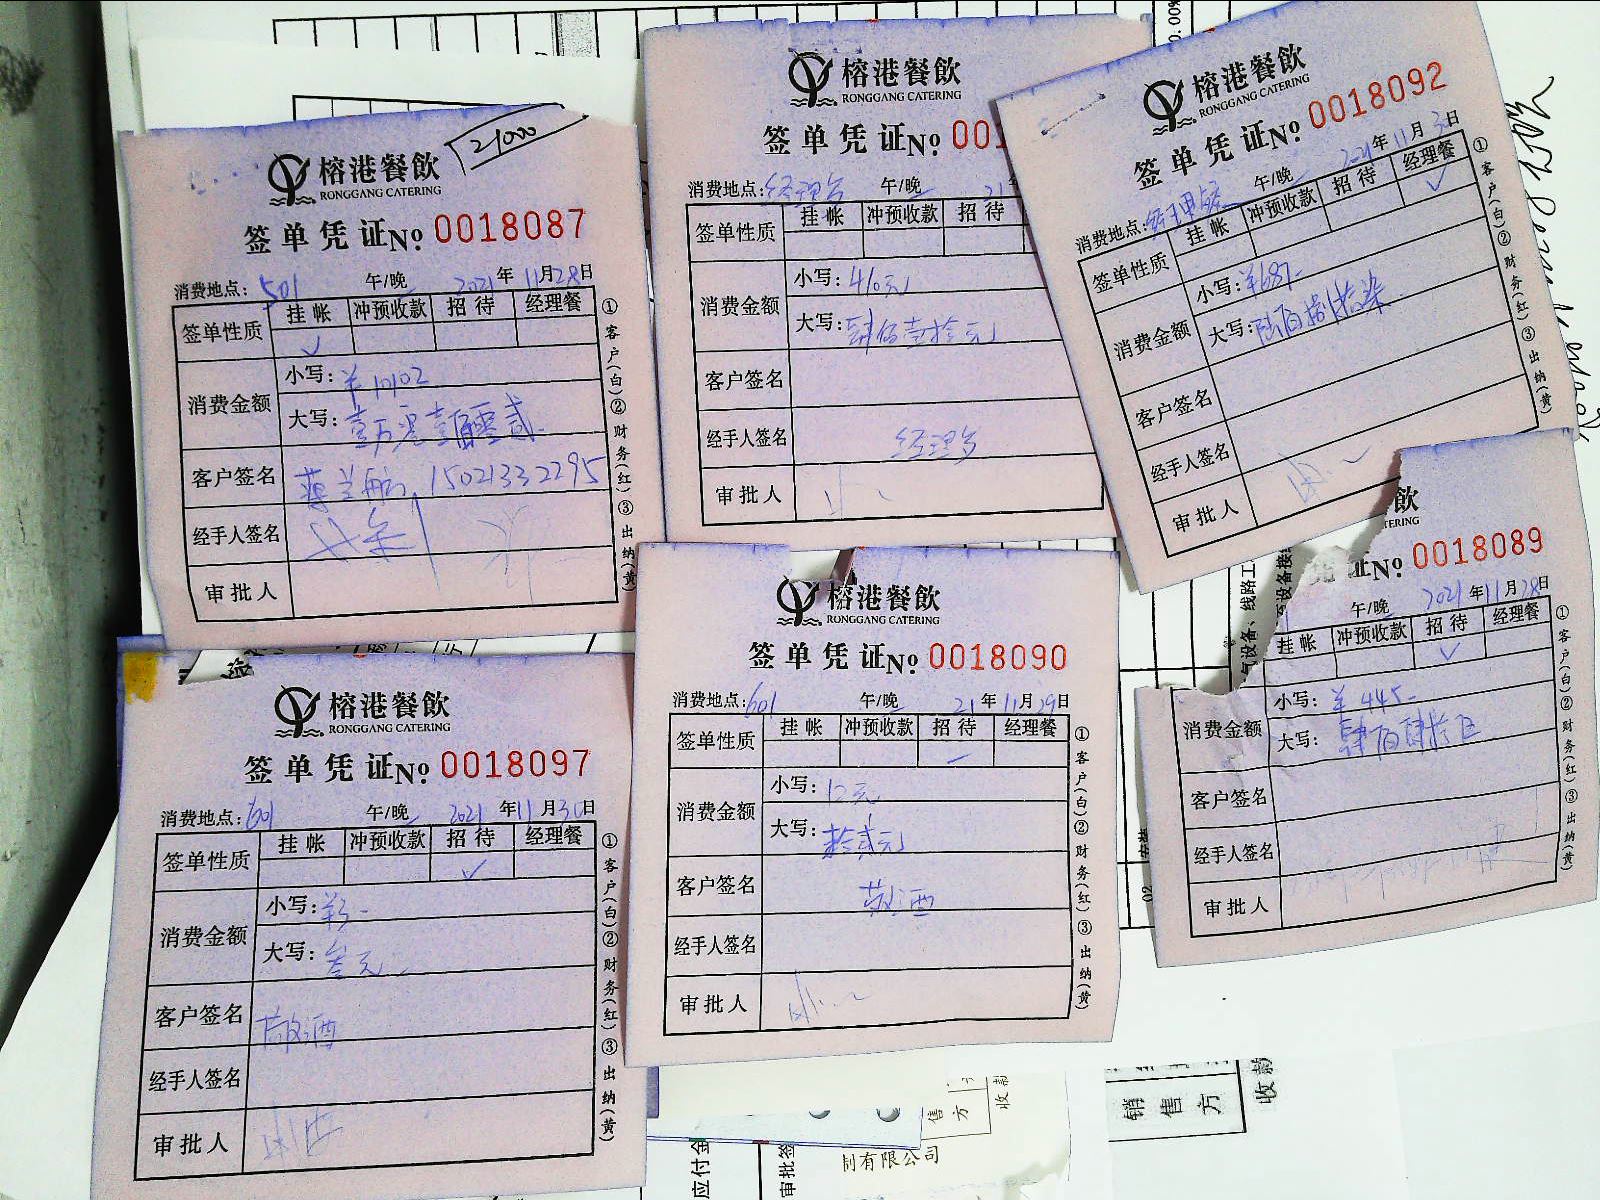 榕港餐飲
RONGGANG CATERING
21000
签单凭证No. 0018087
消费地点: 501 午/晚 2021年11月28日
签单性质 挂帐 冲预收款 招待 经理餐
✓
消费金额 小写: ¥10102
大写: 壹万零壹佰零贰
客户签名 15021332295
经手人签名
审批人
①客户(白)②财务(红)③出纳(黄)
榕港餐飲
RONGGANG CATERING
签单凭证No. 001
消费地点: 经理餐 午/晚 21
签单性质 挂帐 冲预收款 招待
消费金额 小写: 410元
大写: 肆佰壹拾元
客户签名
经手人签名 经理餐
审批人
榕港餐飲
RONGGANG CATERING
签单凭证No. 0018092
消费地点: 经理餐 午/晚 2021年11月3日
签单性质 挂帐 冲预收款 招待 经理餐
✓
消费金额 小写: ¥687-
大写: 陆佰捌拾柒
客户签名
经手人签名
审批人
①客户(白)②财务(红)③出纳(黄)
榕港餐飲
RONGGANG CATERING
签单凭证No. 0018097
消费地点: 601 午/晚 2021年11月30日
签单性质 挂帐 冲预收款 招待 经理餐
✓
消费金额 小写: ¥3-
大写: 叁元
客户签名 敬酒
经手人签名
审批人
①客户(白)②财务(红)③出纳(黄)
榕港餐飲
RONGGANG CATERING
签单凭证No. 0018090
消费地点: 601 午/晚 21年11月29日
签单性质 挂帐 冲预收款 招待 经理餐
消费金额 小写: 12元
大写: 拾贰元
客户签名 敬酒
经手人签名
审批人
①客户(白)②财务(红)③出纳(黄)
飲
TERING
证No. 0018089
午/晚 2021年11月28日
挂帐 冲预收款 招待 经理餐
✓
消费金额 小写: ¥445-
大写: 肆佰肆拾伍
客户签名
经手人签名
审批人
①客户(白)②财务(红)③出纳(黄)
气设备、线路工
设备接
02
应付金
审批签
制有限公司
售方
收款
销售方
收款